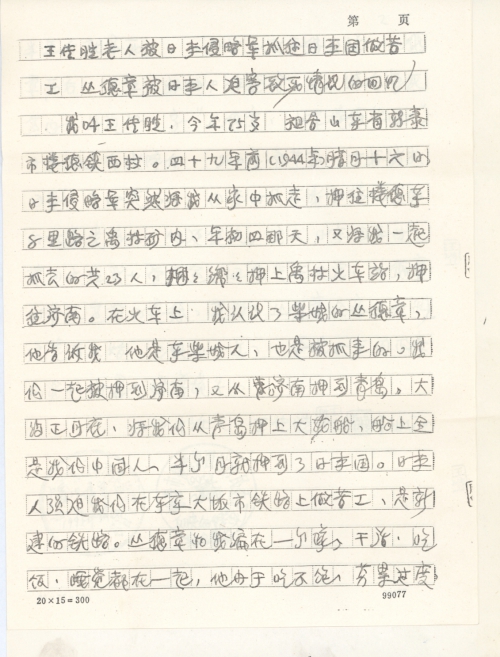 第　页
王传胜老人被日本侵略军抓往日本国做苦
工 丛德章被日本人迫害致死情况的回忆
我叫王传胜，今年75岁 祖居山东省新泰
市楼德镇西村。四十九年前（1944年）腊月十六的
日本侵略军突然将我从家中抓走，押往楼德车
8里路之禹村 内、年 四那天，又将我一起
抓去的共23人， 押上禹村火车站，押
往济南。在火车上 我认识了柴城的丛德章，
他告诉我 他是东柴城人，也是被抓来的。我
们一起被押到济南，又从济南押到青岛。大
约正月底，将我们从青岛押上大货船，船上全
是我们中国人、半个月就押到了日本国。日本
人强迫我们在东京大坂市铁路上做苦工、是新
建的铁路。丛德章和我编在一个 、干活、吃
饭、睡觉都在一起，他由于吃不饱、劳累过度
20×15=300
99077